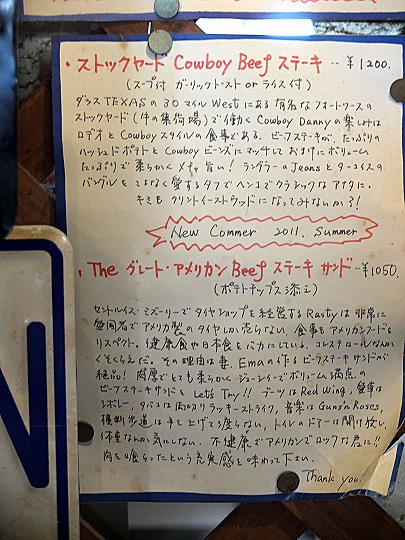 ・ストックヤード Cowboy Beef ステーキ ‥¥1200.
(スープ付 ガーリックトースト or ライス付)
ダラス TEXASの30マイルWestにある有名なフォートワースの
ストックヤード(牛の集荷場)で働くCowboy Dannyの楽しみは
ロデオとCowboyスタイルの食事である。ビーフステーキが、たっぷりの
ハッシュドポテトとCowboyビーンズにマッチしておまけにボリューム
たっぷりで柔らかく旨い! ラングラーのJeansとターコイスの
バングルをこよなく愛するタフでヘンコでクラシックなアイタに。
キミもクリントイーストウッドになってみないか?!
New Commer 2011. Summer
・The グレート・アメリカン Beef ステーキ サンド ‥¥1050.
(ポテトチップス添え)
セントルイス・ミズーリーでタイヤショップを経営するRastyは非常に
愛国者でアメリカ製のタイヤしか売らない。食事もアメリカンフードを
リスペクト。健康食や日本食をバカにしている。コレステロールなんか
くそくらえだ。その理由は妻、Emaの作るビーフステーキサンドが
絶品! 肉厚でとても柔らかくジューシーでボリューム満点の
ビーフステーキサンドを Let's Try!! ブーツはRed Wing, 愛車は
シボレー, タバコは両切りラッキーストライク, 音楽はGuns'n Roses,
横断歩道は手を上げて渡らない, トイレのドアーは開け放し,
体重なんか気にしない. 不健康でアメリカンでロックな君に!!
肉を喰らったという充実感を味わって下さい.
Thank you.